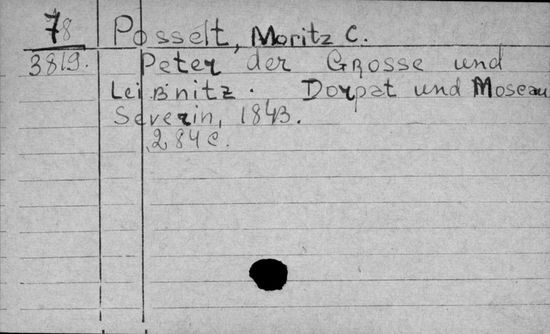 78 Posselt, Moritz C.
3819. Peter der Grosse und
Leibnitz. Dorpat und Moscau
Severin, 1843.
284 c.